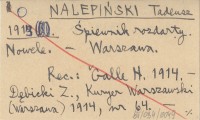 NALEPIŃSKI Tadeusz
1913 Śpiewnik rozdarty.
Nowele. – Warszawa.
Rec.: Galle H. 1914. –
Dębicki Z., Kuryer Warszawski
(Warszawa) 1914, nr 64. –